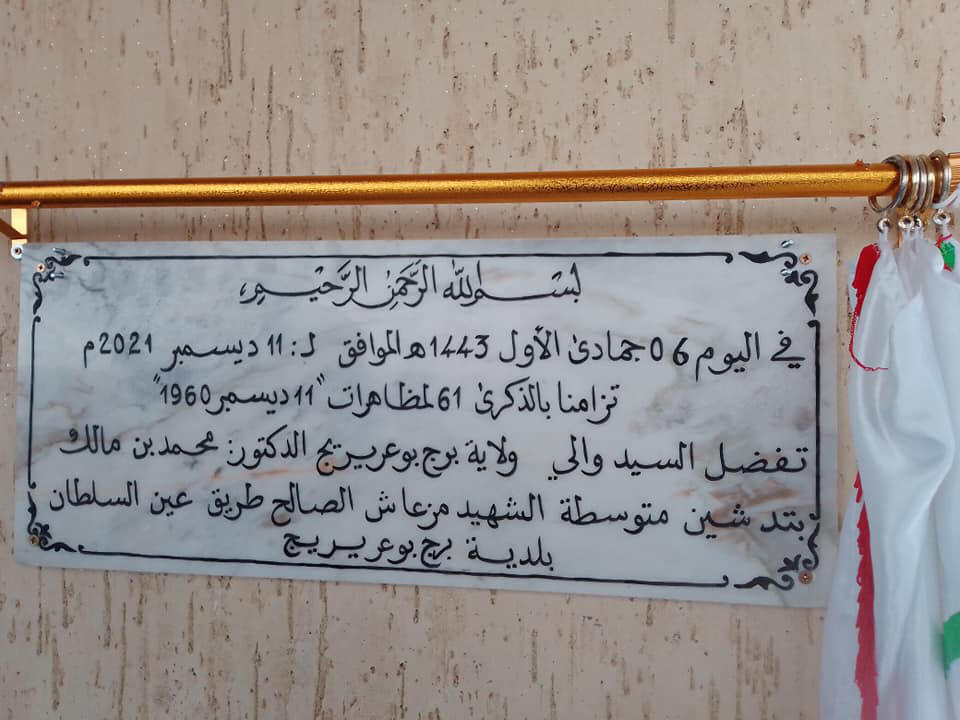 بسم الله الرحمن الرحيم
في اليوم 06 جمادى الأول 1443هـ الموافق لـ: 11 ديسمبر 2021م
تزامنا بالذكرى 61 لمظاهرات "11 ديسمبر 1960"
تفضل السيد والي ولاية برج بوعريريج الدكتور: محمد بن مالك
بتدشين متوسطة الشهيد مزعاش الصالح طريق عين السلطان
بلدية برج بوعريريج